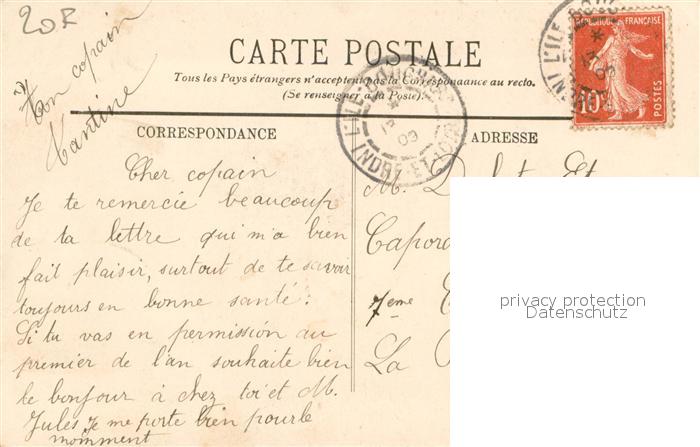 20F
CARTE POSTALE
Tous les Pays étrangers n'acceptent pas la Correspondance au recto.
(Se renseigner à la Poste).
CORRESPONDANCE
ADRESSE
RÉPUBLIQUE FRANÇAISE
10c
POSTES
L'ILE-BOUCHARD
INDRE-ET-LOIRE
09
L'ILE-BOUC
Ton copain
Tantine
Cher copain
Je te remercie beaucoup
de ta lettre qui m'a bien
fait plaisir, surtout de te savoir
toujours en bonne santé.
Si tu vas en permission au
premier de l'an souhaite bien
le bonjour à chez toi et M.
Jules je me porte bien pour le
momment
M. D
Capora
7eme
La
privacy protection
Datenschutz